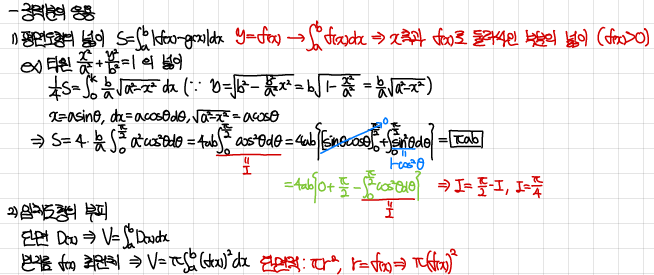 - 정적분의 응용
1) 평면도형의 넓이 S=∫_a^b|f(x)-g(x)|dx y=f(x) → ∫_a^b f(x)dx ⇒ x축과 f(x)로 둘러싸인 부분의 넓이 (f(x)>0)
ex) 타원 x²/a²+y²/b²=1 의 넓이
1/4 S=∫_0^a b/a √(a²-x²) dx (∵ y=√(b²-b²/a² x²)=b√(1-x²/a²)=b/a √(a²-x²))
x=asinθ, dx=acosθdθ, √(a²-x²)=acosθ
⇒ S=4·b/a ∫_0^{π/2} a²cos²θdθ=4ab∫_0^{π/2}cos²θdθ=4ab{[sinθcosθ]_0^{π/2}+∫_0^{π/2}sin²θdθ}=πab
0
I
1-cos²θ
=4ab{0+π/2-∫_0^{π/2}cos²θdθ} ⇒ I=π/2-I, I=π/4
I
2) 입체도형의 부피
단면 D(x) ⇒ V=∫_a^b D(x)dx
f(x) 회전체 ⇒ V=π∫_a^b(f(x))²dx 단면적: πr², r=f(x) ⇒ π(f(x))²